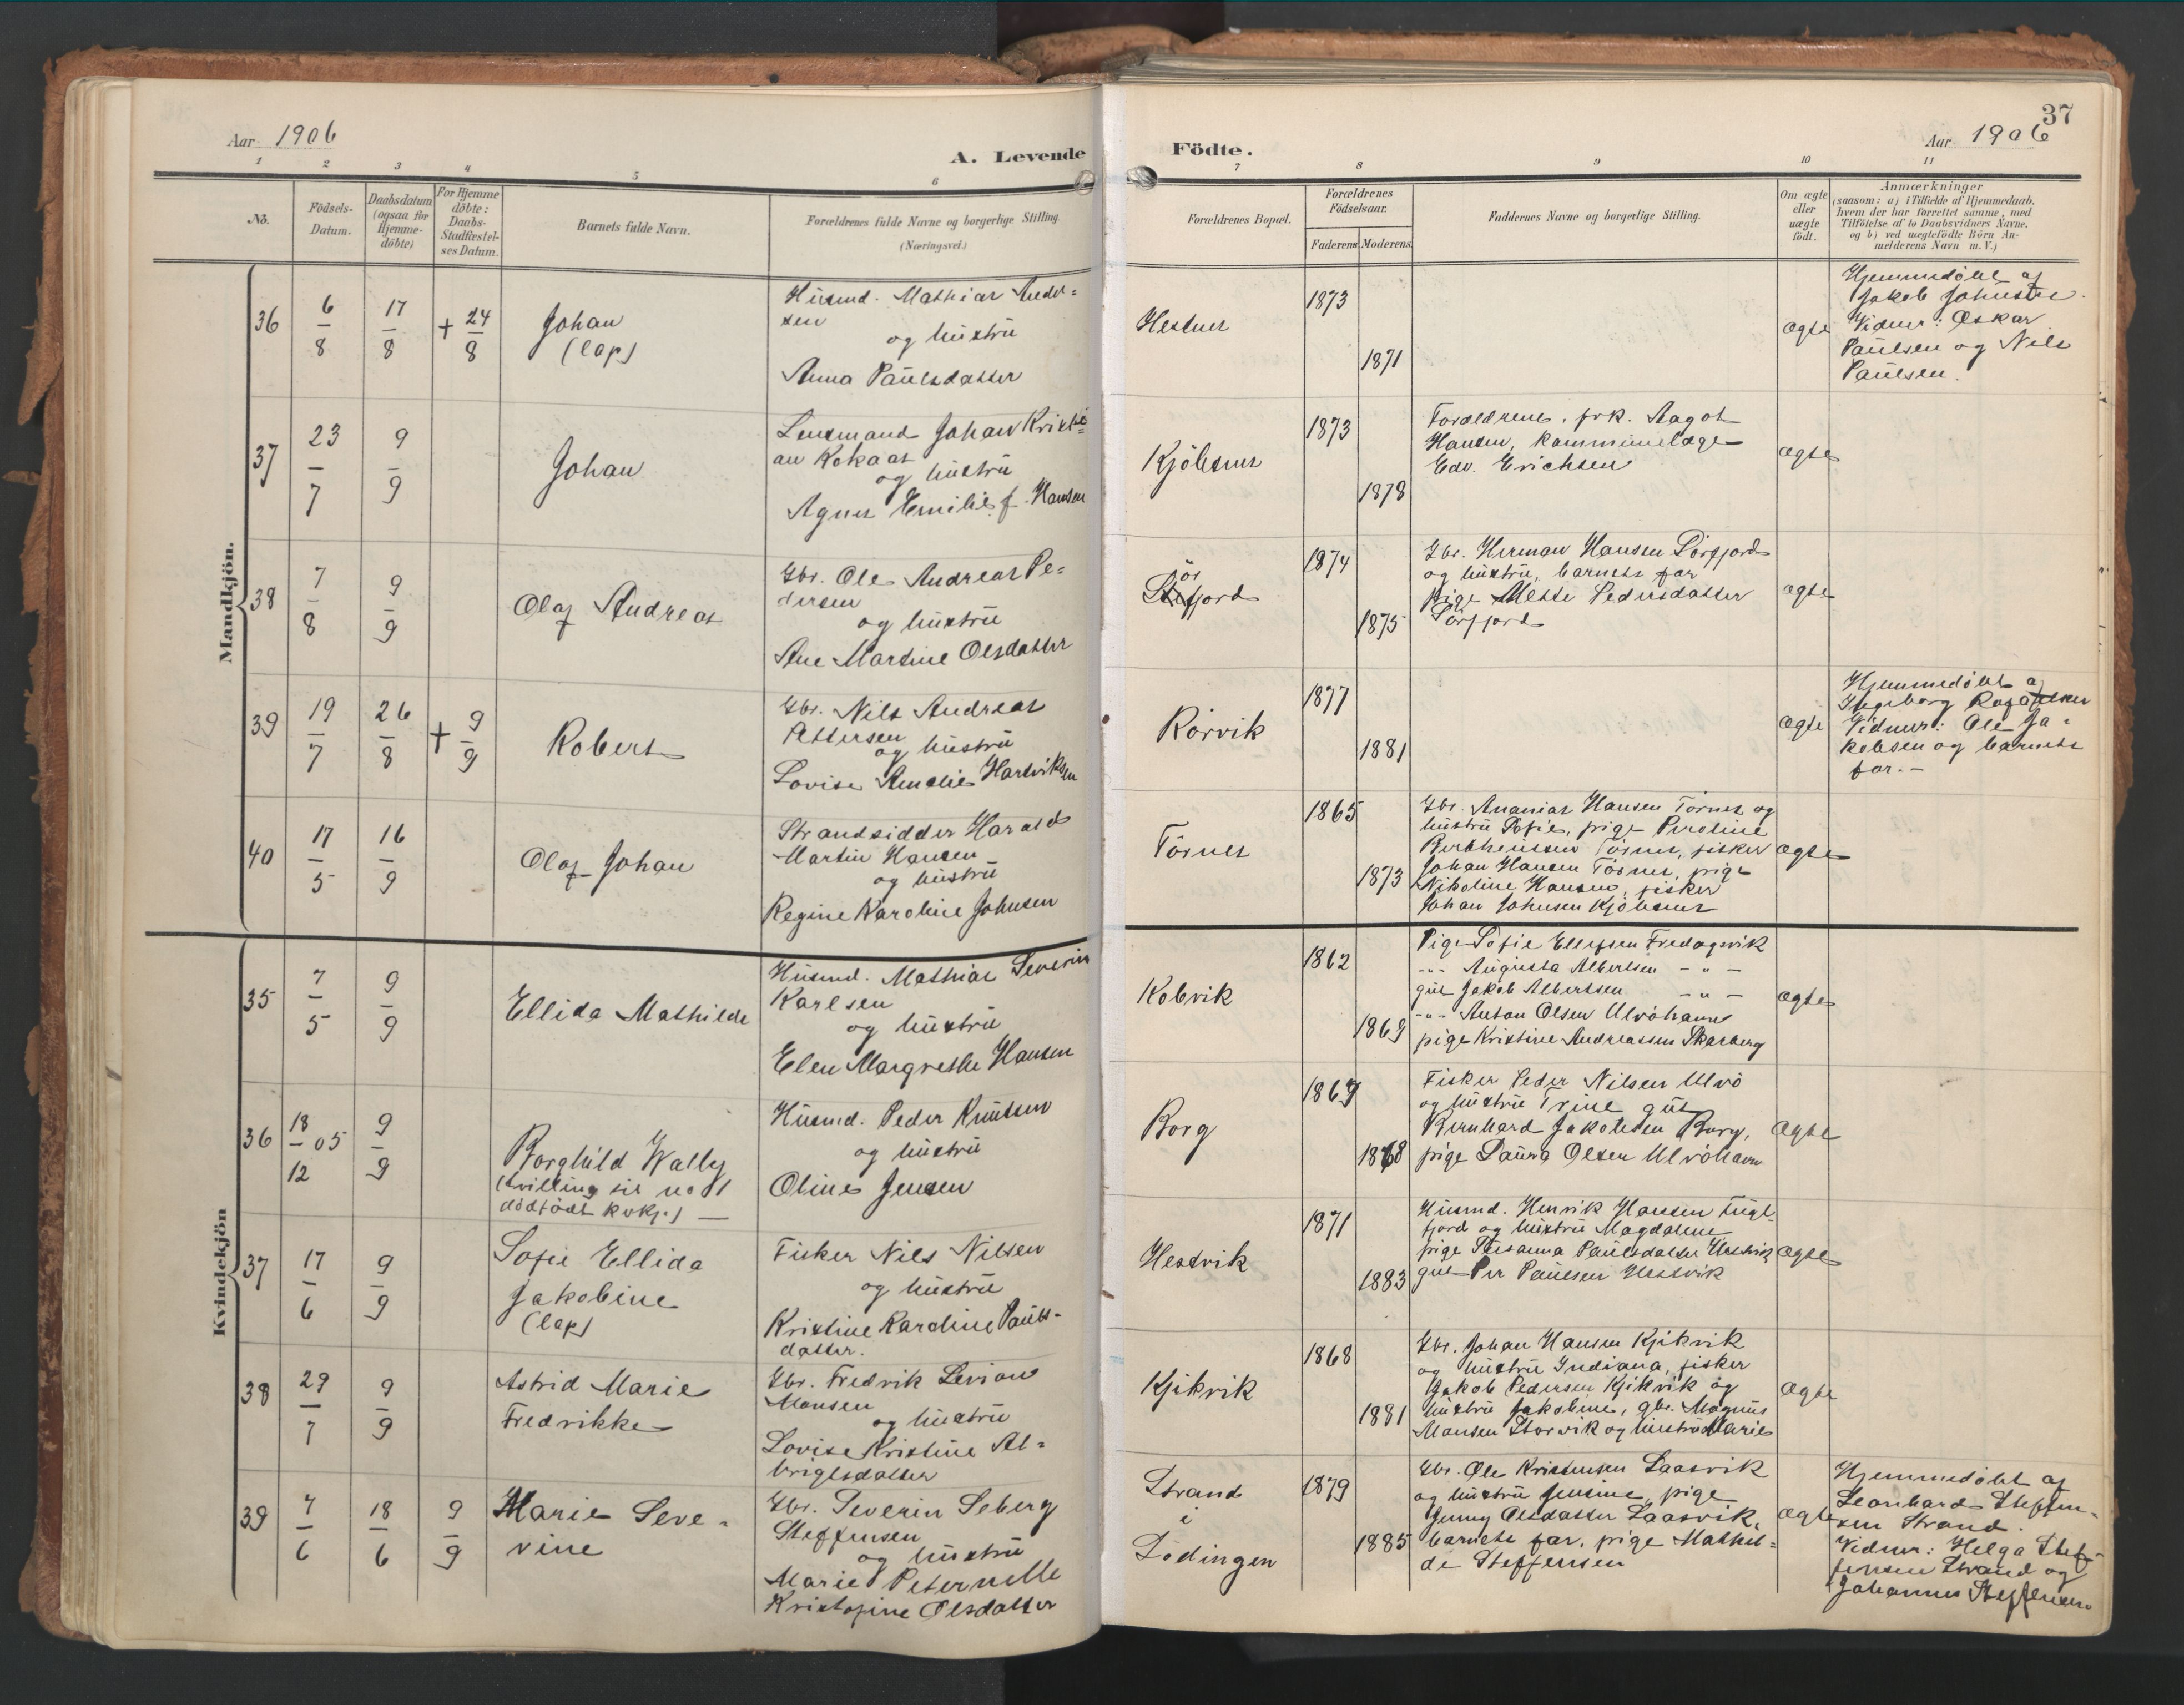 37
Aar 1906
A. Levende
Födte.
Aar 1906
1 2 3 4 5 6 7 8 9 10 11
No.
Födsels-
Datum.
Daabsdatum
(ogsaa for
Hjemme-
döbte)
For Hjemme
döbte:
Daabs-
Stadfæstel-
ses Datum.
Barnets fulde Navn.
Forældrenes fulde Navne og borgerlige Stilling.
(Næringsvei.)
Forældrenes Bopæl.
Forældrenes
Födselsaar.
Faderens Moderens
Faddernes Navne og borgerlige Stilling.
Om ægte
eller
uægte
födt.
Anmærkninger
(saasom: a) i Tilfælde af Hjemmedaab.
hvem der har forrettet samme, med
Tilföielse af to Daabsvidners Navne.
og b) ved uægtefödte Börn An-
melderens Navn m. V.)
Mandkjön.
36
6/8
17/8
+ 24/8
Johan
(lap)
Husmd. Mathias Ander=
sen
og hustru
Anna Paulsdatter
Hestnes
1873
1871
ægte
Hjemmedöbt af
Jakob Johnsen.
Vidner: Oskar
Paulsen og Nils
Paulsen.
37
23/7
9/9
Johan
Lensmand Johan Kristi=
an Kokaas
og hustru
Agnes Emilie f. Hansen
Kjöbsnes
1873
1878
Forældrene, frk. Aagot
Hansen, kommunelæge
Edv. Erichsen
ægte
38
7/8
9/9
Olaf Andreas
Gbr. Ole Andreas Pe=
dersen
og hustru
Ane Martine Olsdatter
ör
fjord
1874
1875
Gbr. Herman Hansen Sörfjord
og hustru, barnets far
pige Mette Pedersdatter
Sörfjord
ægte
39
19/7
26/8
+ 9/9
Robert
Gbr. Nils Andreas
Pettersen
og hustru
Lovise Amalie Hartviksen
Rörvik
1877
1881
ægte
Hjemmedöbt af
Ingeborg
Vidner: Ole Ja=
kobsen og barnets
far. -
40
17/5
16/9
Olaf Johan
Strandsidder Harald
Martin Hansen
og hustru
Regine Karoline Johnsen
Törnes
1865
1873
Gbr. Ananias Hansen Törnes og
hustru Sofie, pige Peroline
Berthensen Törnes, fisker
Johan Hansen Törnes, pige
Nikoline Hansen, fisker
Johan Johnsen Kjöbsnes
ægte
Kvindekjön
35
7/5
9/9
Ellida Mathilde
Husmd. Mathias Severin
Karlsen
og hustru
Elen Margrethe Hansen
Kobvik
1862
1869
Pige Sofie Ellefsen Fredagsvik
-"- Augusta Albertsen - " -
gut Jakob Albertsen - " -
-"- Anton Olsen Ulvöhavn
pige Kristine Andreassen Skarberg
ægte
36
18/12 05
9/9
Borghild Wally
(tvilling se no 1
dödfödt kvkj.) —
Husmd. Peder Knutsen
og hustru
Oline Jensen
Borg
1867
1868
Fisker Peder Nilsen Ulvö
og hustru Trine gut
Bernhard Jakobsen Borg,
pige Laura Olsen Ulvöhavn
ægte
37
17/6
9/9
Sofie Ellida
Jakobine
(lap)
Fisker Nils Nilsen
og hustru
Kristine Karoline Pauls-
datter.
Hestvik
1871
1883
Husmd. Henrik Hansen
fjord og hustru Magdalene
pige Susanna Paulsdatter Hestvik
gut Per Paulsen Hestvik
ægte
38
29/7
9/9
Astrid Marie
Fredrikke
Gbr. Fredrik Levion
Monsen
og hustru
Lovise Kristine Al=
brigtsdatter
Kjikvik
1868
1881
Gbr. Johan Hansen Kjikvik
og hustru Indiana, fisker
Jakob Pedersen Kjikvik og
hustru Jakobine, gbr. Magnus
Monsen Storvik og hustru Marie
ægte
39
7/6
18/6
9/9
Marie Seve=
rine
Gbr. Severin Seberg
Steffensen
og hustru
Marie Peternelle
Kristofine Olsdatter
Strand
i
Lödingen
1879
1885
Gbr. Ole Kristensen Laasvik
og hustru Jensine, pige
Jenny Olsdatter Laasvik,
barnets far, pige Mathil=
de Steffensen
ægte
Hjemmedöbt af
Leonhard Steffen-
sen Strand.
Vidner: Helga Stef-
fensen Strand og
Johannes Steffensen